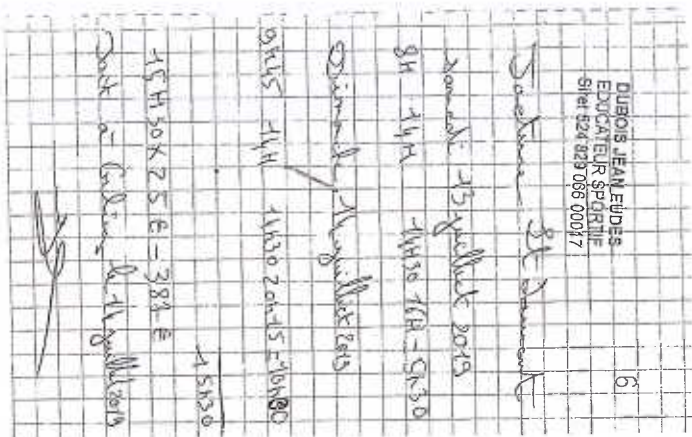 DUBOIS JEAN EUDES
EDUCATEUR SPORTIF
Siret 524 829 066 00017
6
Facture St
samedi 13 juillet 2019
8H - 14H 14H30 16H = 5h30
Dimanche 14 juillet 2019
9H45 - 14H 14h30 20h15 = 10h00
15h30
15H30 x 25 € = 387 €
Fait à le 14 juillet 2019